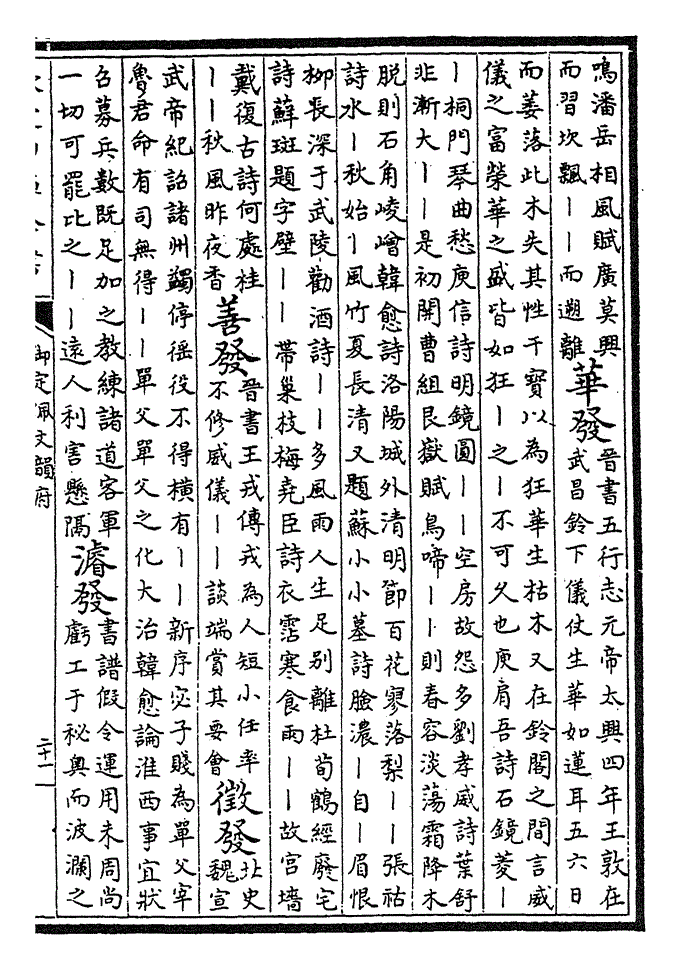 鳴潘岳相風賦廣莫興
而習坎飄丨丨而遡離
華發
晉書五行志元帝太興四年王敦在
武昌鈴下儀仗生華如蓮耳五六日
而萎落此木失其性干寶以為狂華生枯木又在鈴閣之間言威
儀之富榮華之盛皆如狂丨之丨不可久也庾肩吾詩石鏡菱丨
丨桐門琴曲愁庾信詩明鏡圓丨丨空房故怨多劉孝威詩葉舒
非漸大丨丨是初開曹組艮嶽賦鳥啼丨丨則春容淡蕩霜降木
脱則石角崚嶒韓愈詩洛陽城外清明節百花寥落梨丨丨張祜
詩水丨秋始丨風竹夏長清又題蘇小小墓詩臉濃丨自丨眉恨
栁長深于武陵勸酒詩丨丨多風雨人生足别離杜荀鶴經廢宅
詩蘚斑題字壁丨丨帶巢枝梅堯臣詩衣霑寒食雨丨丨故宫墻
戴復古詩何處桂
丨丨秋風昨夜香
善發
晉書王戎傳戎為人短小任率
不修威儀丨丨談端賞其要會
徵發
北史
魏宣
武帝紀詔諸州蠲停徭役不得橫有丨丨新序宓子賤為單父宰
魯君命有司無得丨丨單父單父之化大治韓愈論淮西事宜狀
召募兵數既足加之教練諸道客軍
一切可罷比之丨丨逺人利害懸隔
濬發
書譜假令運用未周尚
虧工于秘奥而波瀾之
御定佩文韻府
二十一